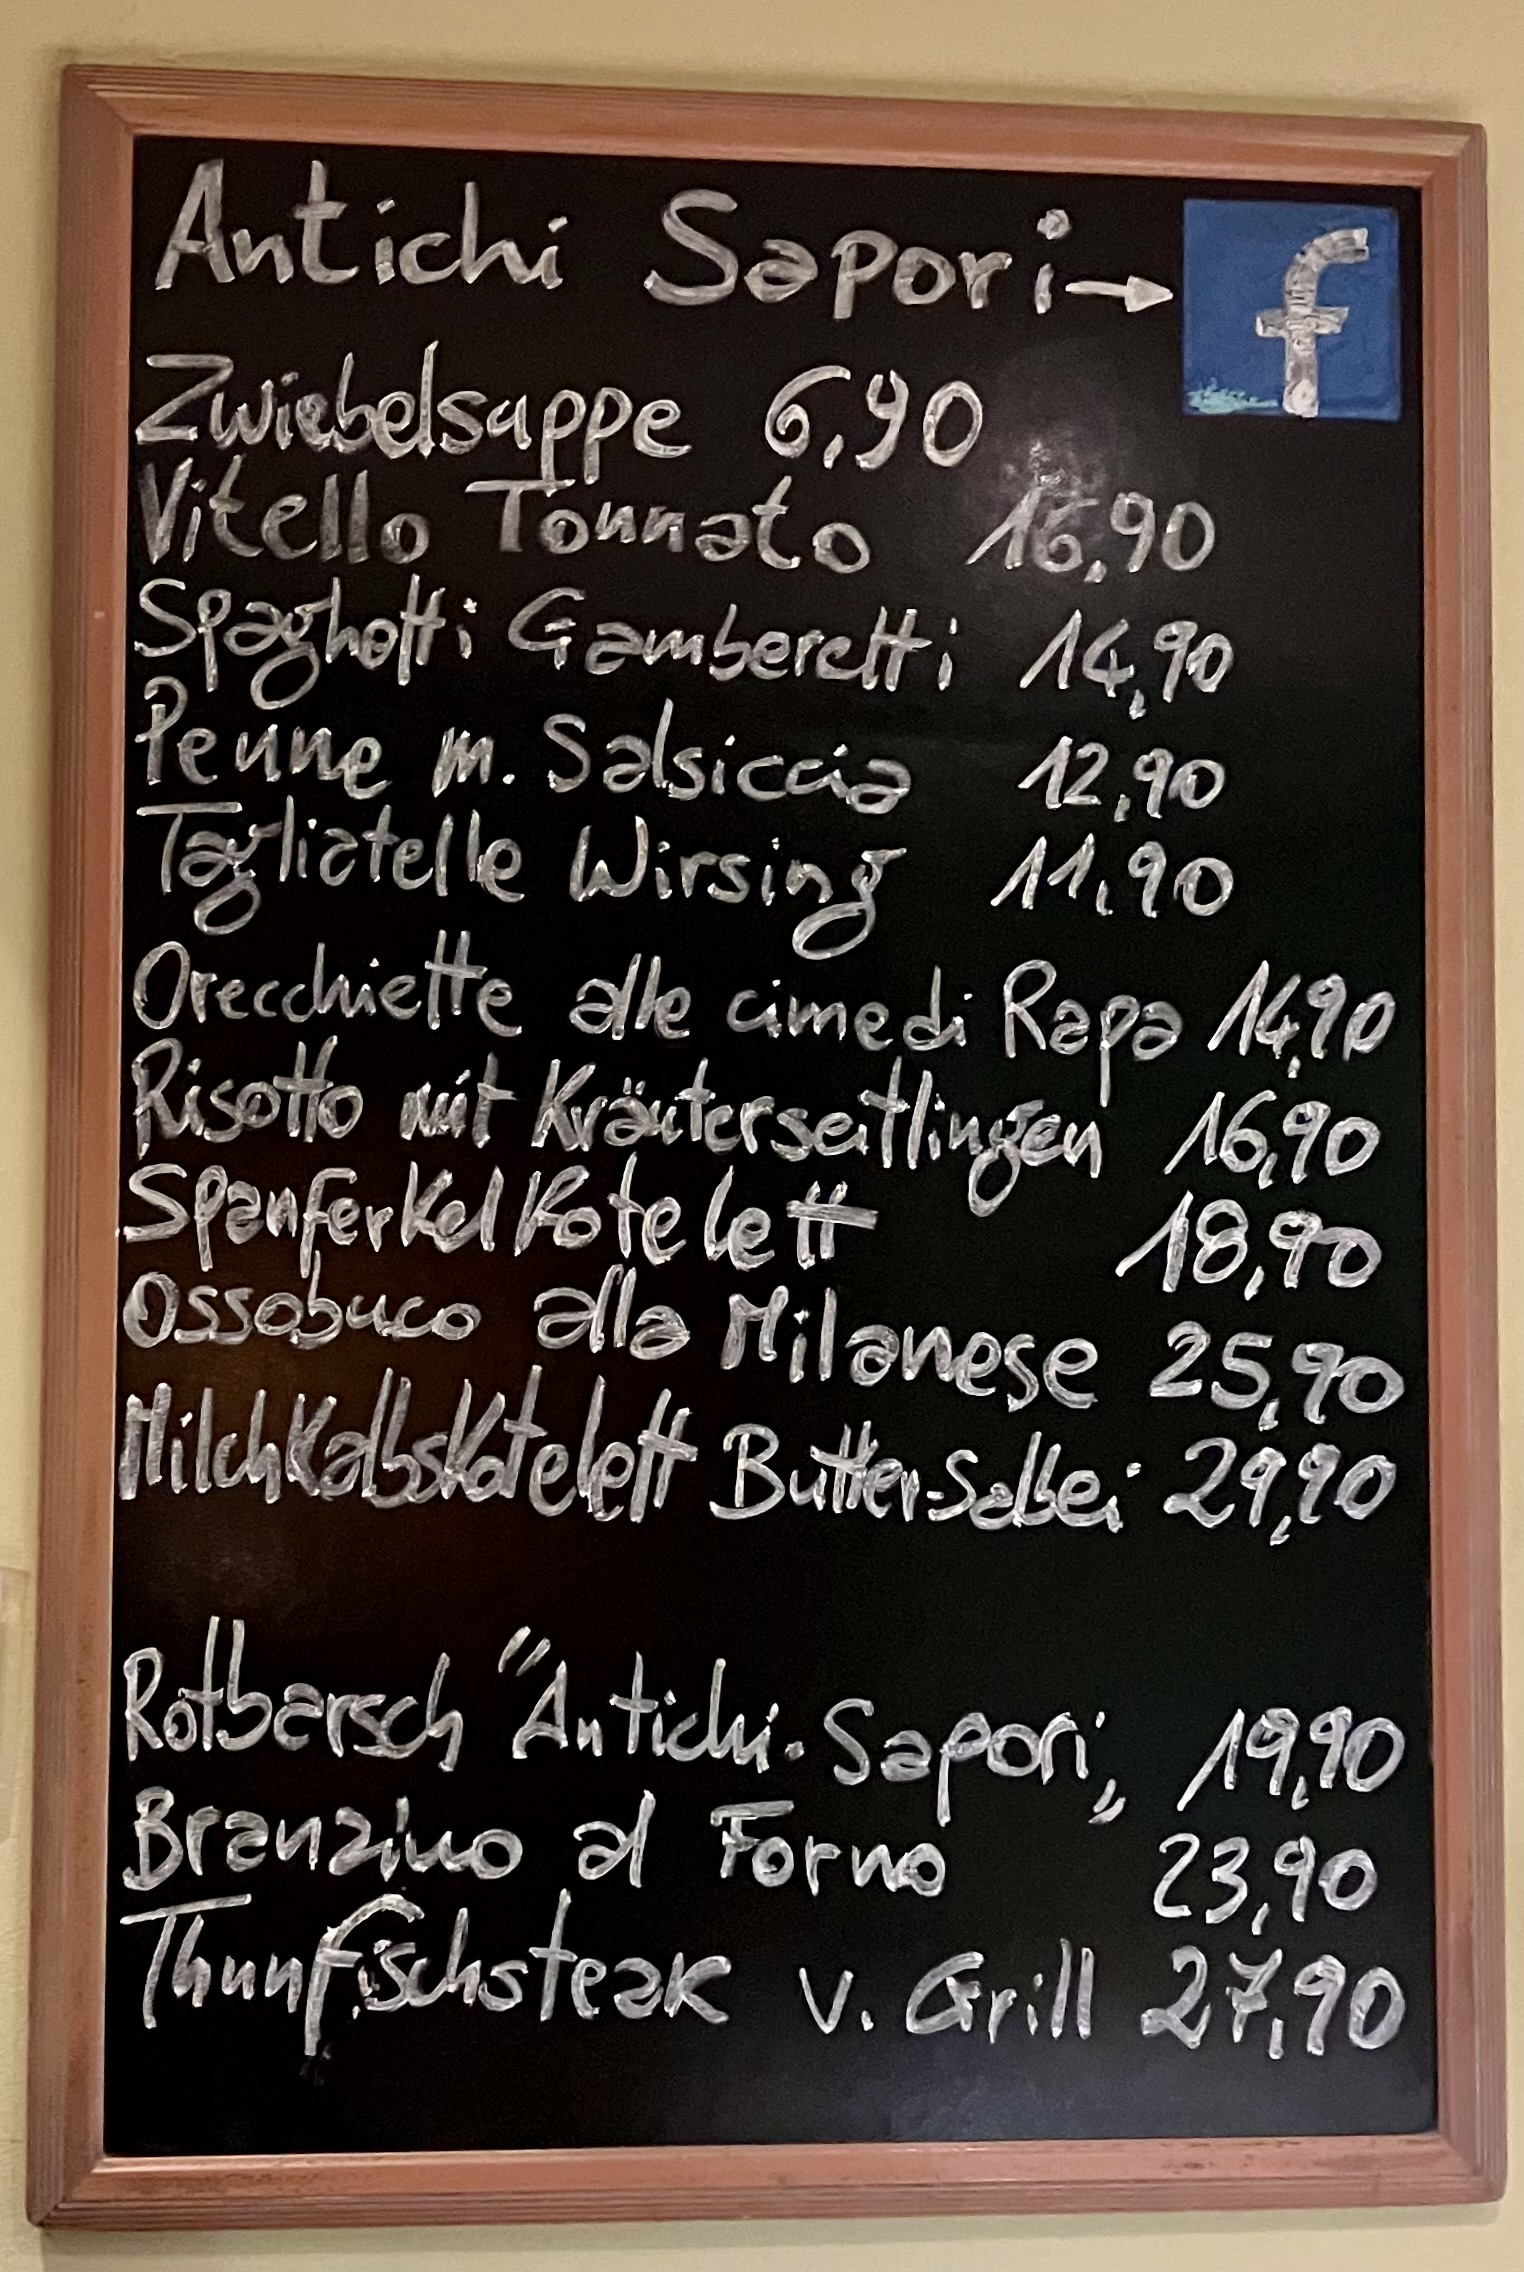 Antichi Sapori → f
Zwiebelsuppe 6,90
Vitello Tonnato 16,90
Spaghetti Gamberetti 14,90
Penne m. Salsiccia 12,90
Tagliatelle Wirsing 11,90
Orecchiette alle cime di Rapa 14,90
Risotto mit Kräuterseitlingen 16,90
Spanferkel Kotelett 18,90
Ossobuco alla Milanese 25,90
Milchkalbskotelett Butter-Salbei 29,90
Rotbarsch "Antichi-Sapori„ 19,90
Branzino al Forno 23,90
Thunfischsteak v. Grill 27,90